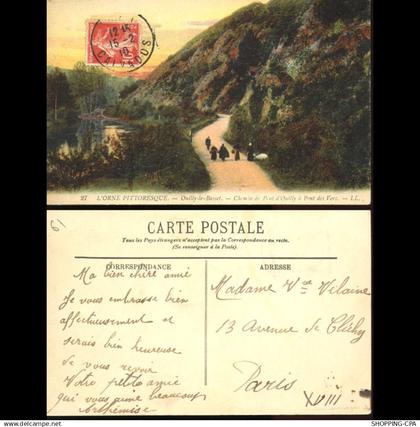 12 15
15-2
10
CALVADOS
27 L'ORNE PITTORESQUE. - Ouilly-le-Basset. - Chemin de Pont d'Ouilly à Pont des Vers. - LL.
61
CARTE POSTALE
Tous les Pays étrangers n'acceptent pas la Correspondance au recto.
(Se renseigner à la Poste).
CORRESPONDANCE
Ma bien chère amie
Je vous embrasse bien
affectueusement et
serais bien heureuse
de vous revoir
Votre petite amie
qui vous aime beaucoup
Arthémise
ADRESSE
Madame Vve Vilaine
13 Avenue de Clichy
Paris
XVIII
WWW.SHOPPING-CPA-FR.COM